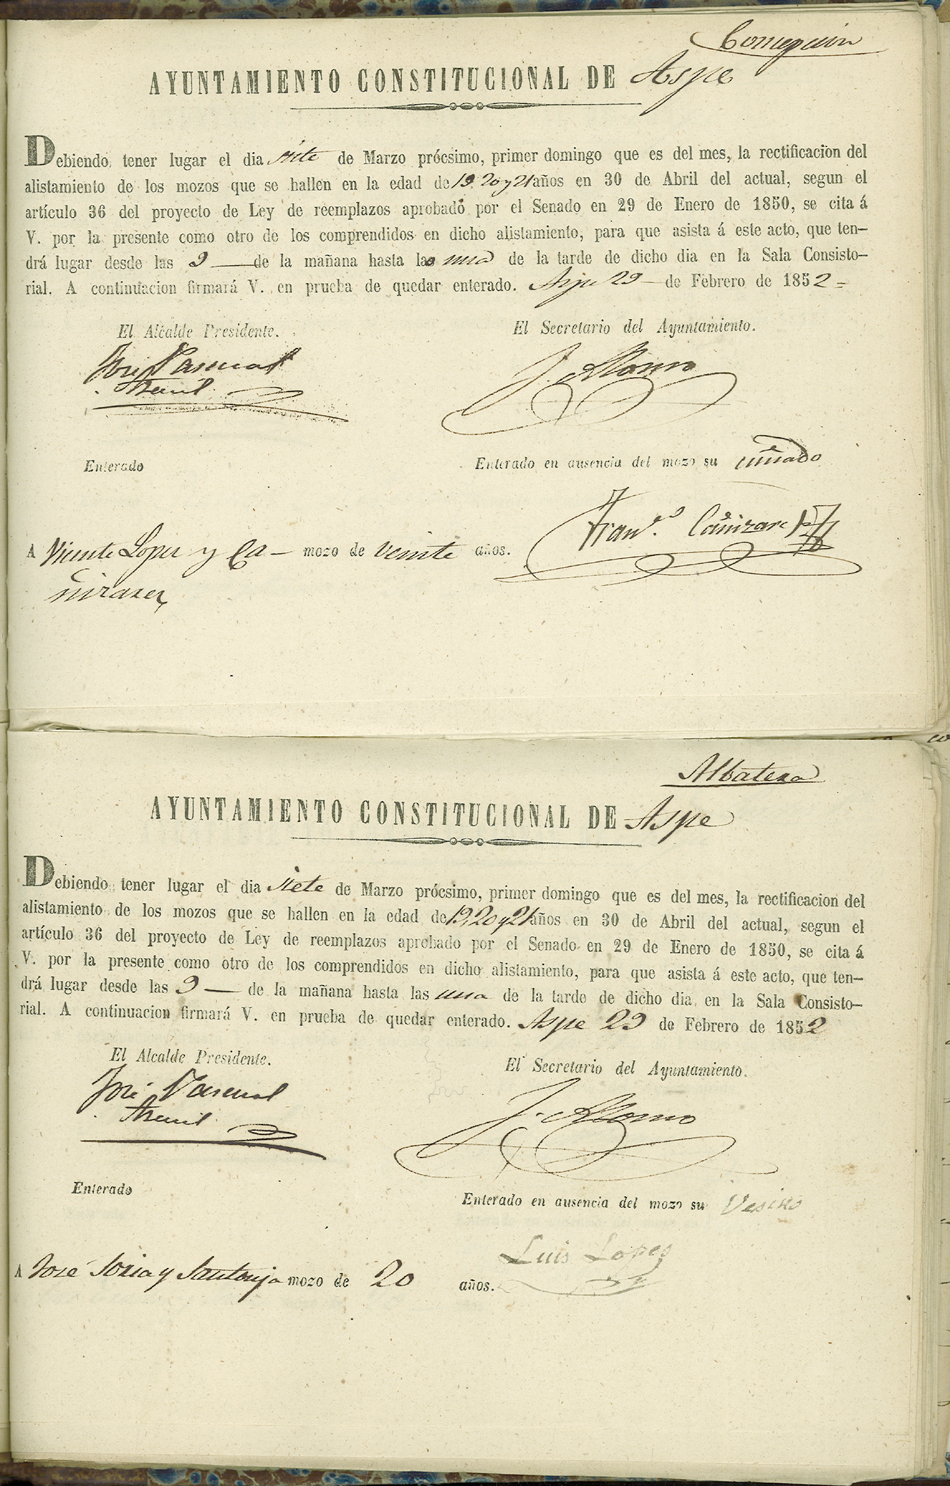 Concepcion
AYUNTAMIENTO CONSTITUCIONAL DE Aspe
Debiendo tener lugar el dia siete de Marzo prócsimo, primer domingo que es del mes, la rectificacion del
alistamiento de los mozos que se hallen en la edad de 19. 20 y 21 años en 30 de Abril del actual, segun el
artículo 36 del proyecto de Ley de reemplazos aprobado por el Senado en 29 de Enero de 1850, se cita á
V. por la presente como otro de los comprendidos en dicho alistamiento, para que asista á este acto, que ten–
drá lugar desde las 9 — de la mañana hasta la una de la tarde de dicho dia en la Sala Consisto–
rial. A continuacion firmará V. en prueba de quedar enterado. Aspe 29 de Febrero de 1852 =
El Alcalde Presidente.
El Secretario del Ayuntamiento.
José Pascual
J. Alonso
Enterado
Enterado en ausencia del mozo su cuñado
Fran.co Cañizares
A Vicente Lopez y Ca– mozo de veinte años.
ñizares
Albatera
AYUNTAMIENTO CONSTITUCIONAL DE Aspe
Debiendo tener lugar el dia siete de Marzo prócsimo, primer domingo que es del mes, la rectificacion del
alistamiento de los mozos que se hallen en la edad de 19, 20 y 21 años en 30 de Abril del actual, segun el
artículo 36 del proyecto de Ley de reemplazos aprobado por el Senado en 29 de Enero de 1850, se cita á
V. por la presente como otro de los comprendidos en dicho alistamiento, para que asista á este acto, que ten–
drá lugar desde las 9 — de la mañana hasta las una de la tarde de dicho dia en la Sala Consisto–
rial. A continuacion firmará V. en prueba de quedar enterado. Aspe 29 de Febrero de 1852
El Alcalde Presidente.
El Secretario del Ayuntamiento.
José Pascual
J. Alonso
Enterado
Enterado en ausencia del mozo su Vesino
Luis Lopes
A José Soria y Santonja mozo de 20 años.